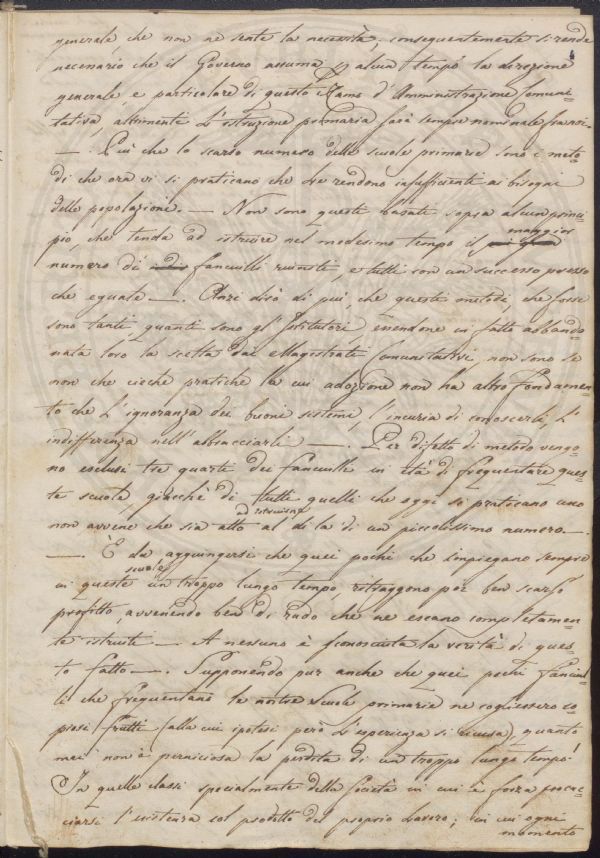 generale, che non ne sente la necessità; conseguentemente si rende
necessario che il Governo assuma p alcun tempo la direzione
generale, e particolare di questo Ramo d'Amministrazione Comuni=
tativa, altrimenti L'istruzione primaria sarà sempre nominale fra noi.
— . Più che lo scarso numero delle scuole primarie sono i meto=
di che ora vi si praticano che Le rendono insufficienti ai bisogni
della popolazione. — Non sono queste basate sopra alcun princi=
pio, che tenda ad istruire nel medesimo tempo il maggior
numero di fanciulli riuniti, e tutti con un successo presso
che eguale —. Anzi dirò di più che questi metodi, che forse
sono tanti quanti sono gl'Istitutori essendone in fatto abbando=
nata loro la scelta dai Magistrati Comunitativi, non sono se
non che cieche pratiche la cui adozione non ha altro fondamen=
to che L'ignoranza dei buoni sistemi, l'incuria di conoscerli, L'
indifferenza nell'abbracciarli —. Per difetto di metodo vengo=
no esclusi tre quarti dei fanciulli in età di frequentare ques=
te scuole, giacchè di tutti quelli che oggi si praticano uno
non avvene che sia atto ad istruire al di là di un piccolissimo numero —.
— . È da aggiungersi che quei pochi che impiegano sempre
in queste scuole un troppo lungo tempo, ritraggono poi ben scarso
profitto, avvenendo ben di rado che ne escano completamen=
te istruiti —. A nessuno è sconosciuta la verità di ques=
to fatto —. Supponendo pur anche che quei pochi fanciul=
li che frequentano le nostre Scuole primarie ne cogliessero co=
piosi frutti (alla cui ipotesi però L'esperienza si ricusa), quanto
mai non è perniciosa la perdita di un troppo lungo tempo!
In quelle classi specialmente della Società in cui è forza procac=
ciarsi l'esistenza col prodotto del proprio Lavoro; in cui ogni
momento